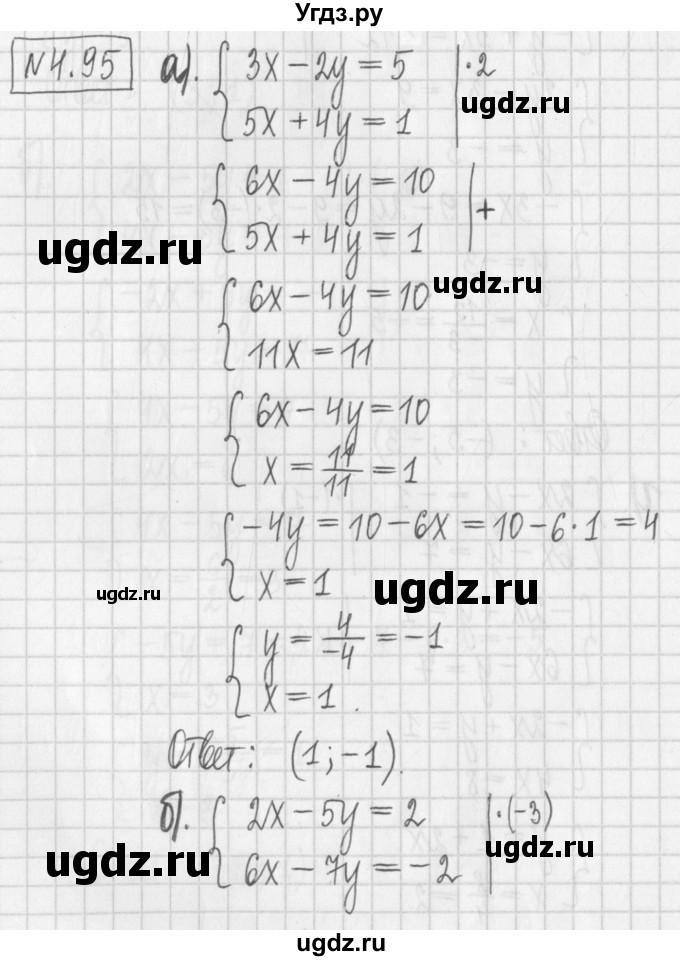 Угдз.ру
№4.95 а). { 3x − 2y = 5 | ·2
5x + 4y = 1
ugdz.ru
{ 6x − 4y = 10 | +
5x + 4y = 1
ugdz.ru
ugdz.ru
{ 6x − 4y = 10
11x = 11
{ 6x − 4y = 10
x = 11/11 = 1
{ −4y = 10 − 6x = 10 − 6·1 = 4
x = 1
ugdz.ru
ugdz.ru
{ y = 4/−4 = −1
x = 1.
Ответ: (1; −1).
б). { 2x − 5y = 2 | ·(−3)
6x − 7y = −2
ugdz.ru
ugdz.ru
ugdz.ru